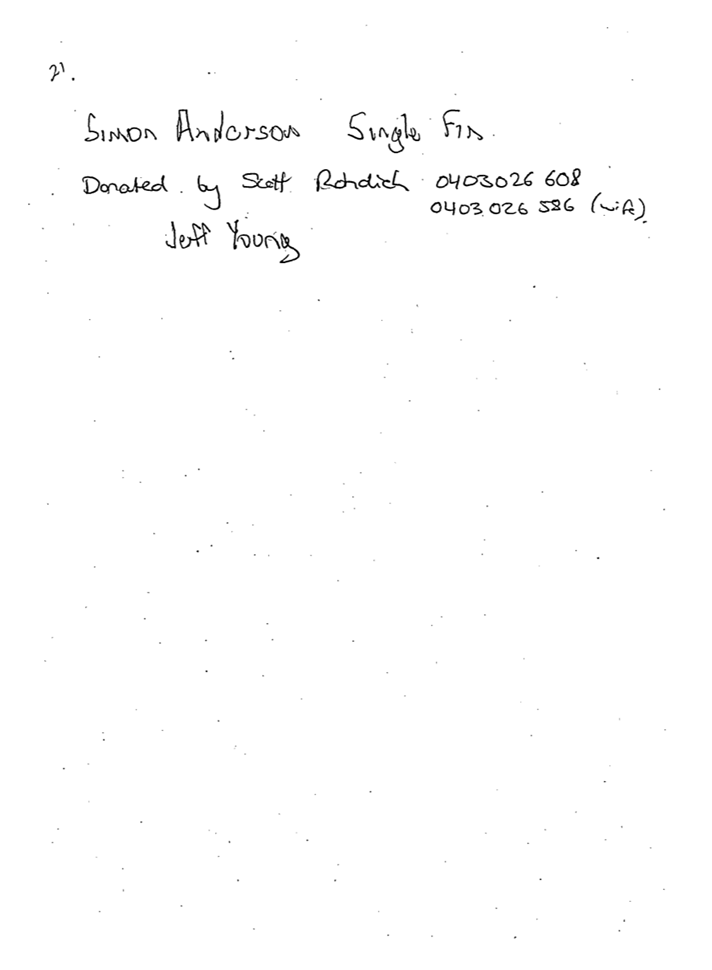 21.
Simon Anderson Single Fin.
Donated by Scott Rohdich 0403026 608
0403 026 586 (wife)
Jeff Young